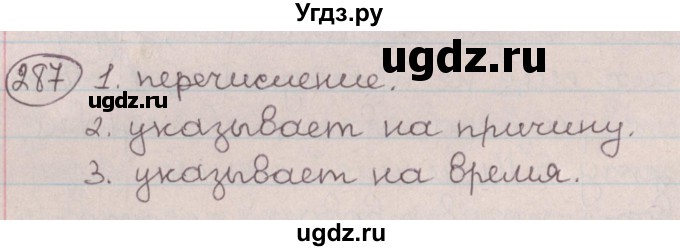 Угдз.ру
ugdz.ru
287 1. перечисление.
ugdz.ru
2. указывает на причину.
3. указывает на время.
ugdz.ru